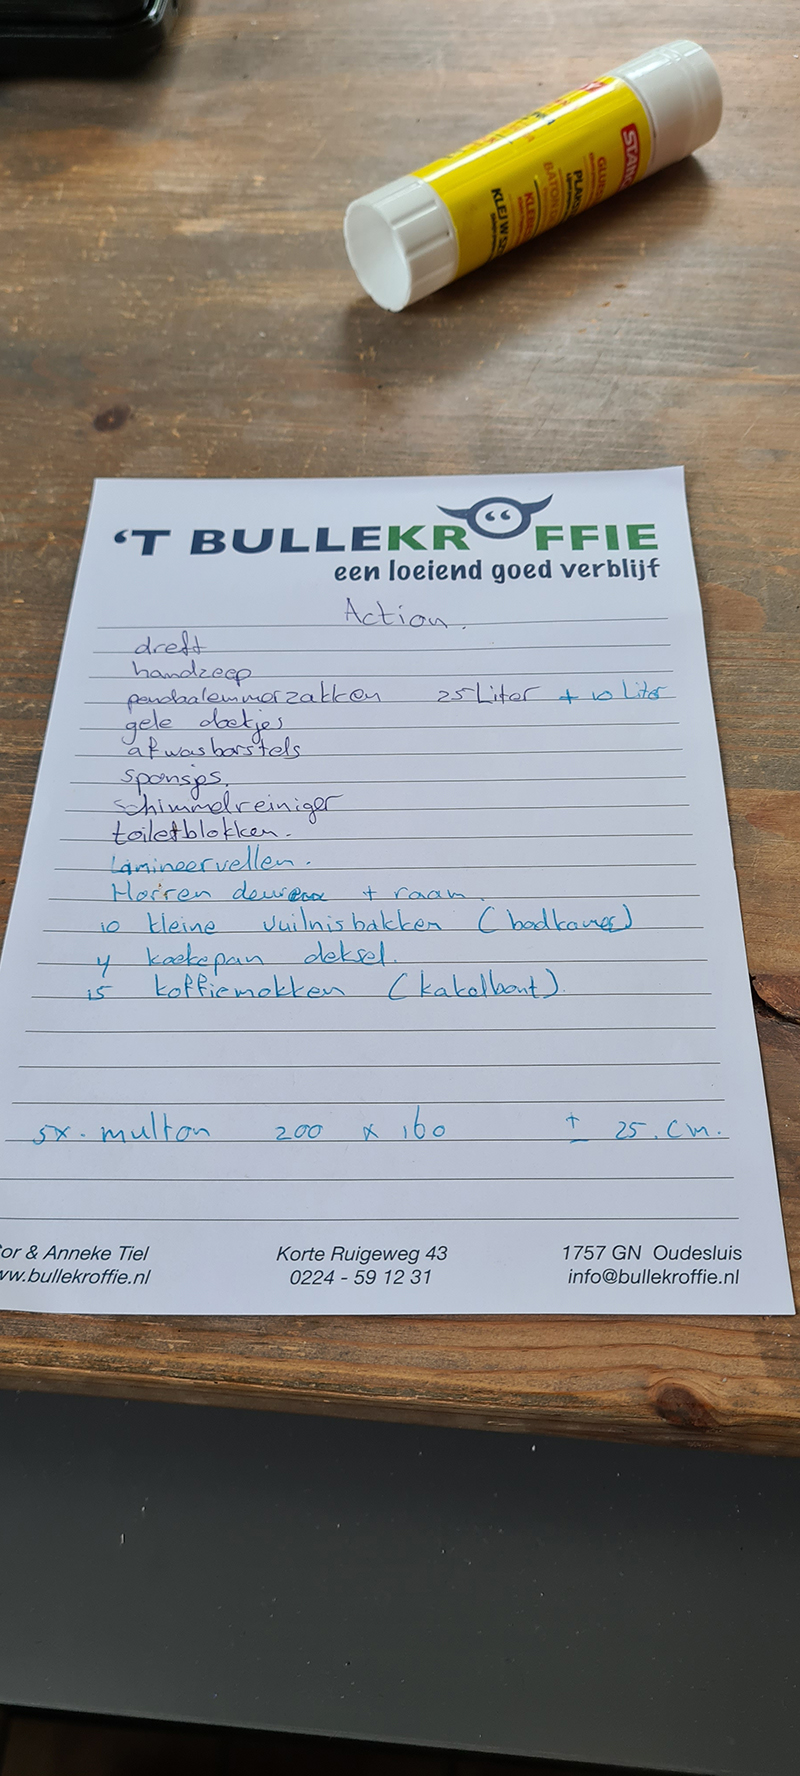 STAR
GLUE
PLAK
KLEJ W SZ
'T BULLEKROFFIE
een loeiend goed verblijf
Action.
dreft
handzeep
pendaalemmerzakken 25 Liter + 10 Liter
gele doekjes
afwasborstels
sponsjes.
schimmelreiniger
toiletblokken.
Lamineervellen.
Horren deuren + raam.
10 kleine vuilnisbakken (badkamer)
4 koekepan deksel.
15 koffiemokken (kakelbont).
5x. multon 200 x 160 ± 25. cm.
or & Anneke Tiel Korte Ruigeweg 43 1757 GN Oudesluis
ww.bullekroffie.nl 0224 - 59 12 31 info@bullekroffie.nl